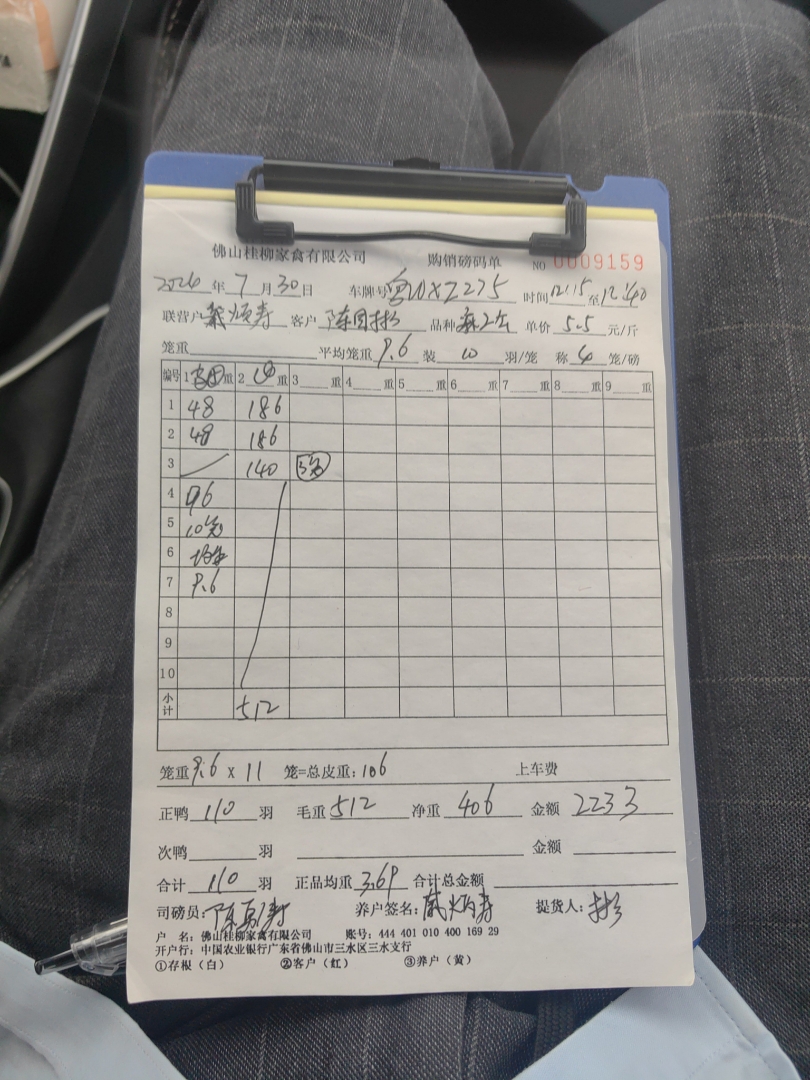 佛山桂柳家禽有限公司 购销磅码单 NO 0009159
2026年7月30日 车牌号粤WXZ275 时间12:15至12:40
联营户 客户陈国彬 品种 单价5.5元/斤
笼重 平均笼重9.6装10羽/笼 称4笼/磅
编号 1 重 2 重 3 重 4 重 5 重 6 重 7 重 8 重 9 重
1 48 186
2 48 186
3 140 3笼
4 96
5 10笼
6
7 9.6
8
9
10
小计 512
笼重9.6x11 笼=总皮重:106 上车费
正鸭110羽 毛重512 净重406 金额2233
次鸭 羽 金额
合计110羽 正品均重3.69 合计总金额
司磅员: 养户签名: 提货人:彬
户 名:佛山桂柳家禽有限公司 账号:444 401 010 400 169 29
开户行:中国农业银行广东省佛山市三水区三水支行
①存根(白) ②客户(红) ③养户(黄)